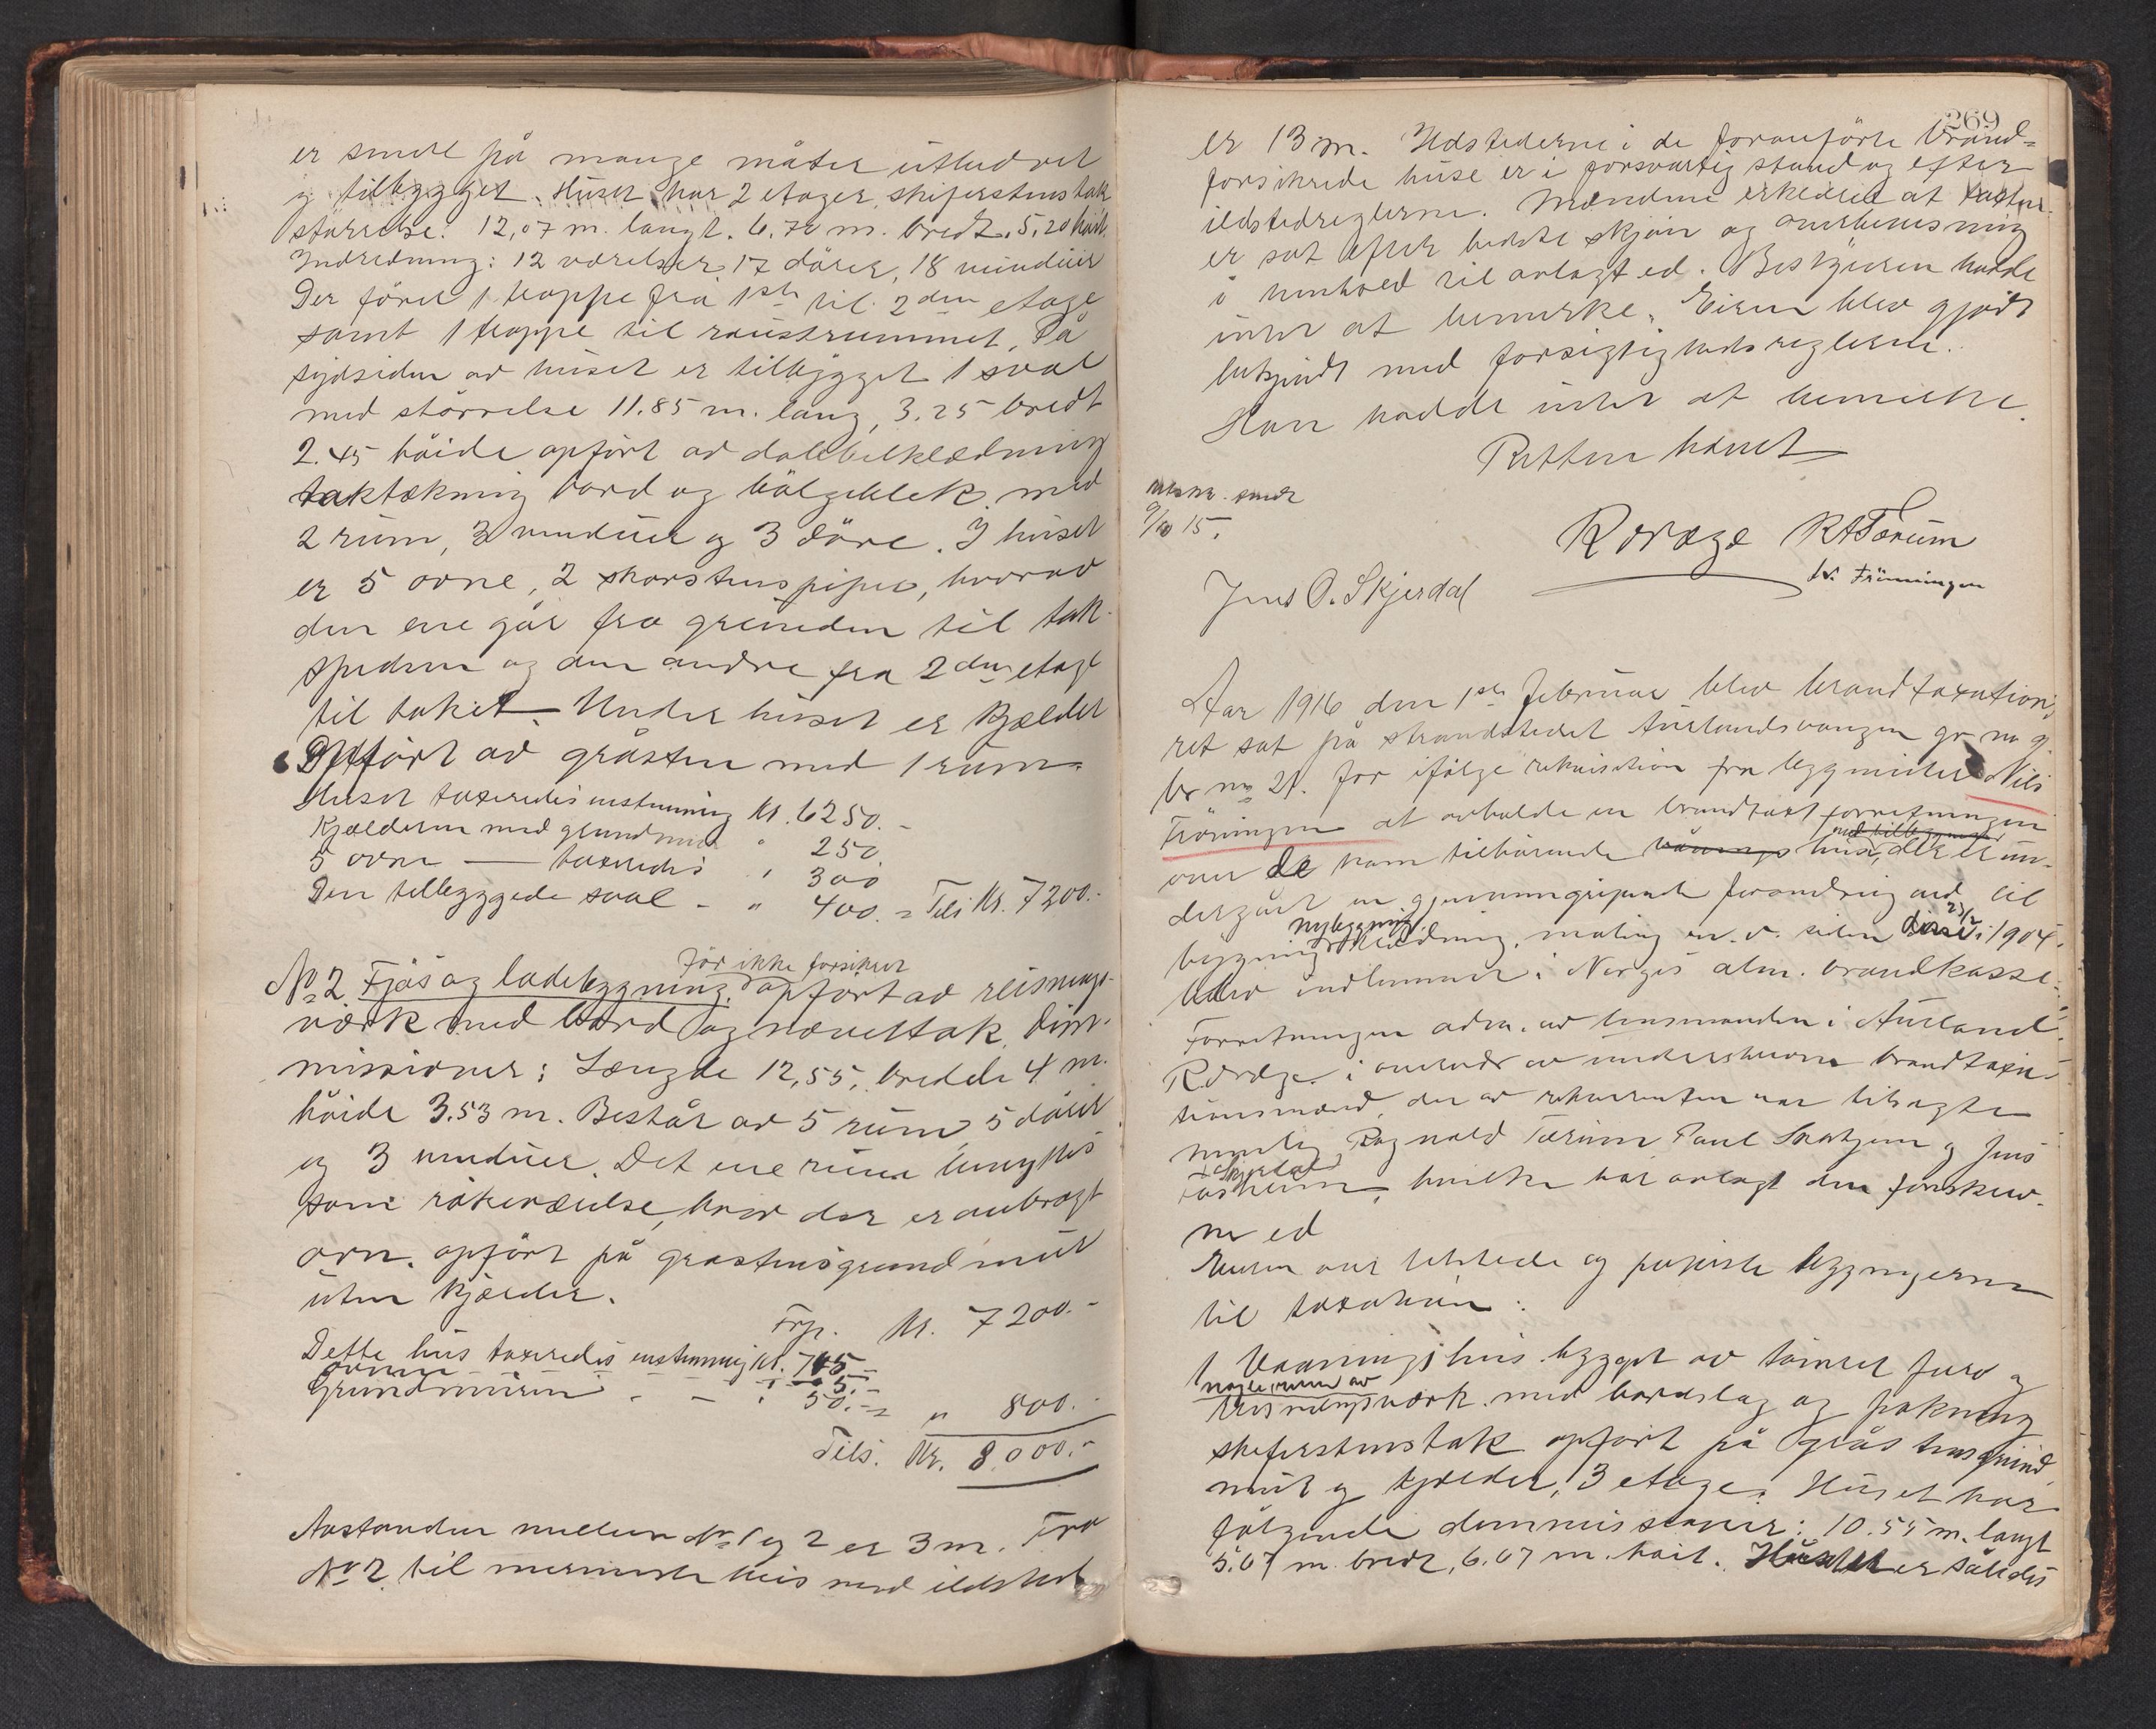 er smell på mange måter utbedret
og tilbygget. Huset har 2 etager, skiferstens tak
størrelse: 12,07 m. langt. 6.72 m. bredt. 5,20 høit.
Indredning: 12 værelser, 17 dører, 18 vinduer
Der fører 1 trappe fra 1ste til 2den etage
samt 1 trappe til raustrummet. På
sydsiden av huset er tilbygget 1 sval
med størrelse 11.85 m. lang, 3.25 bredt
2.45 høide opført av dobbelklædning
taktækning bord og bølgeblek med
2 rum, 3 vinduer og 3 døre. I huset
er 5 ovne, 2 skorstenspiper, hvorav
den ene går fra grunden til tak-
spidsen og den andre fra 2den etage
til taket. Under huset er kjælder
Opført av gråsten med 1 rum.
Huset taxeredes enstemmig kr. 6250.-
Kjælderen med grundmur " 250.
5 ovne — taxeredes " 300
Den tilbyggede sval - " 400. = Tils kr. 7200.-
No 2. Fjøs og ladebygning. før ikke forsikret opført av reisnings-
værk med bord og nævertak. Dim-
missioner: Længde 12,55, bredde 4 m.
høide 3.53 m. Består av 5 rum, 5 dører
og 3 vinduer. Det ene rum benyttes
som rökeværelse, hvor der er anbragt
ovn. opført på grastensgrundmur
uten kjælder.
Frp. kr. 7200.-
Dette hus taxeredes enstemmig kr. 745.-
ovnen - - - " 5.-
Grundmuren - - " 50.- = " 800.-
Tils. Kr. 8000.-
Avstanden mellem No 1 og 2 er 3 m. Fra
No 2 til nærmeste hus med ildsted
269
er 13 m. Ildstederne i de foranførte brand-
forsikrede huse er i forsvarlig stand og efter
ildstedreglerne. Mændene erklærte at taxten
er sat efter bedste skjøn og overbevisning
i henhold til avlagt ed. Bestyreren hadde
intet at bemerke. Eieren blev gjort
bekjendt med forsigtighedsreglerne.
Han hadde intet at bemerke.
Retten hævet
sendt
9/10 15.
Rørdze RA Tærum
N. Frönningen
Jens O. Skjerdal
Aar 1916 den 1ste februar blev brandtaxations
ret sat på strandstedet Aurlandsvangen gr no 9
br no 21. for ifølge rekvisition fra bygmester Nils
Fröningen at avholde en brandtaxt forretningen
over de ham tilhørende vånings huse, med tilbygninger der er un-
dergået en gjennemgripende forandring ved til
bygning nybygning klædning, maling m.v. siden disse 23/2 i 1904.
blev indlemmet i Norges alm. brandkasse.
Forretningen adm. av lensmanden i Aurland
Rørdze. i overvær av undertegnede brandtaxa-
tionsmænd, der av rekvirenten var tilsagte
nemlig Ragnvald Tærum Paul og Jens
Skjerdal, hvilke har avlagt den forskrev-
ne ed
Eieren var tilstede og paaviste bygningerne
til taxation:
1 Vaaningshus. bygget av tømret furu og
nogle rum av reisningsværk. med bordslag og pakning
skiferstenstak opført på gråstensgrund
mur og kjælder, 3 etager. Huset har
følgende dimmissioner: 10.55 m. langt
5.07 m. bredt, 6.07 m. høit. Huset er således